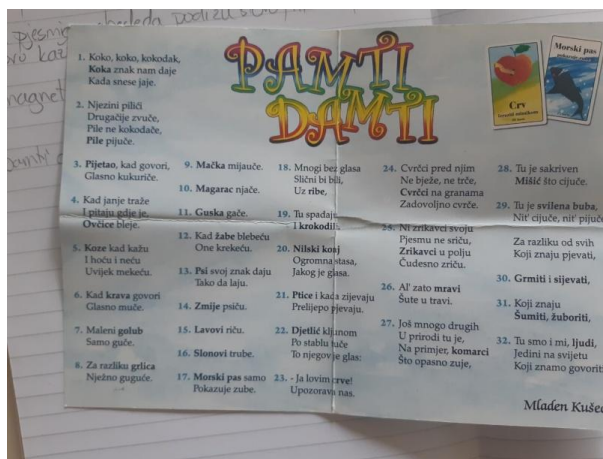 PAMTI
DAMTI
1. Koko, koko, kokodak,
Koka znak nam daje
Kada snese jaje.
2. Njezini pilići
Drugačije zvuče,
Pile ne kokodače,
Pile pijuče.
3. Pijetao, kad govori,
Glasno kukuriče.
4. Kad janje traže
I pitaju gdje je,
Ovčice bleje.
5. Koze kad kažu
I hoću i neću
Uvijek mekeću.
6. Kad krava govori
Glasno muče.
7. Maleni golub
Samo guče.
8. Za razliku grlica
Nježno guguče.
9. Mačka mijauče.
10. Magarac njače.
11. Guska gače.
12. Kad žabe blebeću
One krekeću.
13. Psi svoj znak daju
Tako da laju.
14. Zmije psiču.
15. Lavovi riču.
16. Slonovi trube.
17. Morski pas samo
Pokazuje zube.
18. Mnogi bez glasa
Slični bi bili,
Uz ribe,
19. Tu spadaju
I krokodili.
20. Nilski konj
Ogromna stasa,
Jakog je glasa.
21. Ptice i kada zijevaju
Prelijepo pjevaju.
22. Djetlić kljunom
Po stablu tuče
To njegov je glas:
23. - Ja lovim crve!
Upozorava nas.
24. Cvrčci pred njim
Ne bježe, ne trče,
Cvrčci na granama
Zadovoljno cvrče.
25. Ni zrikavci svoju
Pjesmu ne sriču,
Zrikavci u polju
Čudesno zriču.
26. Al' zato mravi
Šute u travi.
27. Još mnogo drugih
U prirodi tu je,
Na primjer, komarci
Što opasno zuje,
28. Tu je sakriven
Mišić što cijuče.
29. Tu je svilena buba,
Nit' cijuče, nit' pijuče
Za razliku od svih
Koji znaju pjevati,
30. Grmiti i sijevati,
31. Koji znaju
Šumiti, žuboriti,
32. Tu smo i mi, ljudi,
Jedini na svijetu
Koji znamo govoriti
Mladen Kušec
Crv
Morski pas
magnet